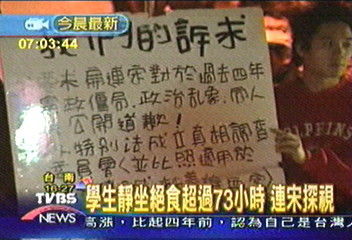 今晨最新
07:03:44
我們的訴求
要求扁連家對於過去四年
憲政僵局、政治乱象、向人
公開道歉!
人特別法成立真相調查
委員會(並比照適用於
DOLPHINS
台南
18-27
TVBS
NEWS
學生靜坐絕食超過73小時 連宋探視
高漲,比起四年前,認為自己是台灣人